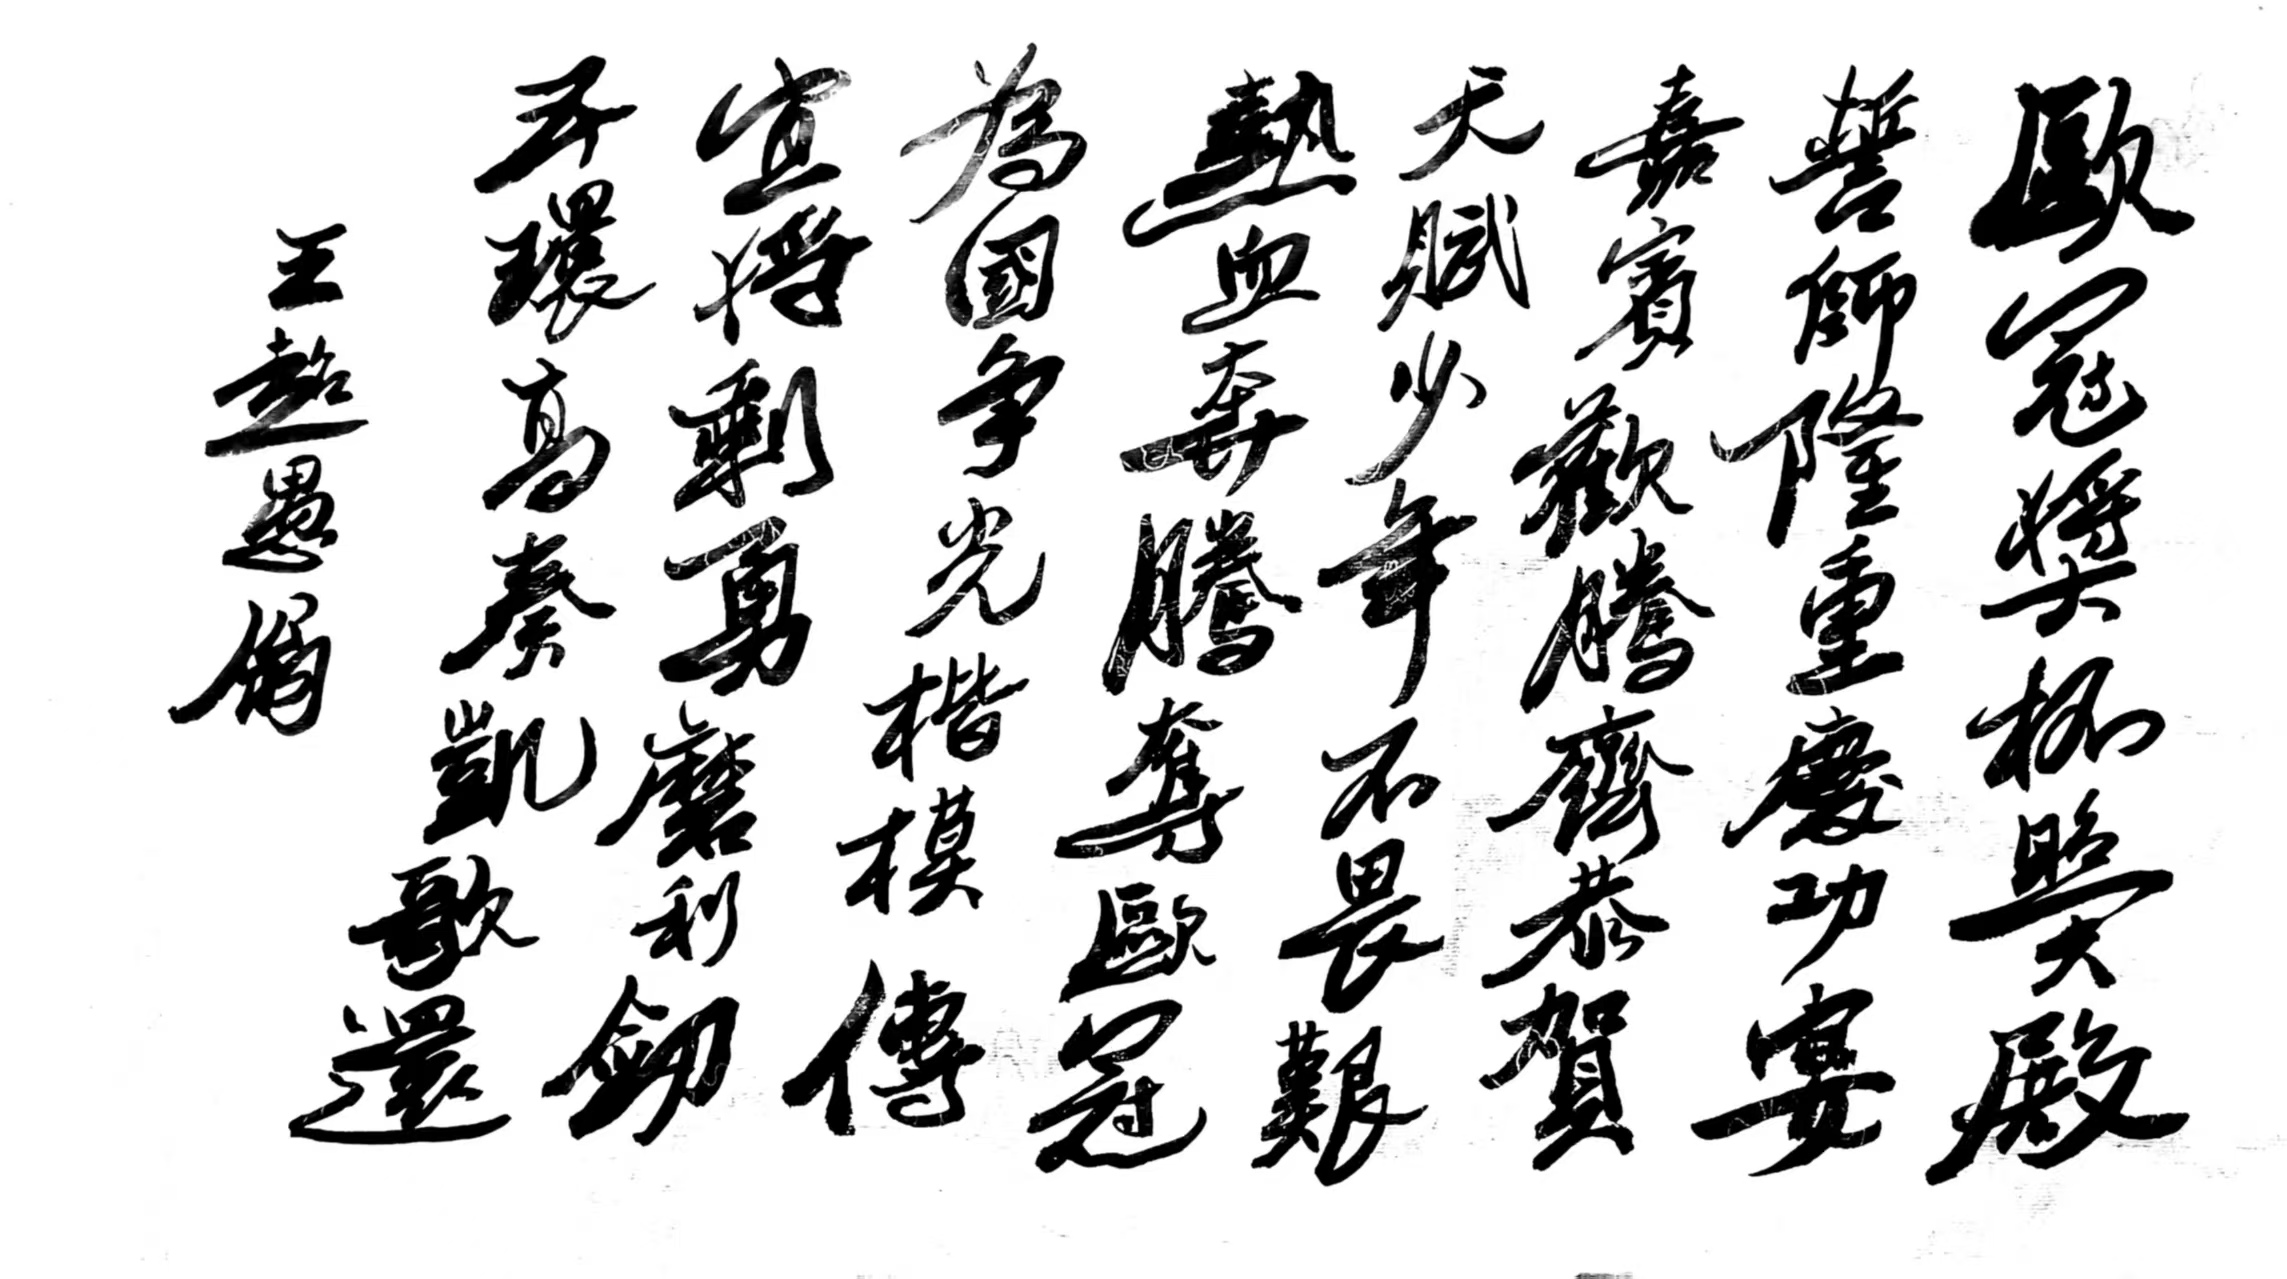 歐冠奬杯照大殿
誓師隆重慶功宴
嘉賓歡騰齊恭賀
天賦少年不畏艱
熱血奔騰奪歐冠
為國争光楷模傳
宜將剩勇磨利劒
五環高奏凱歌還
王超愚